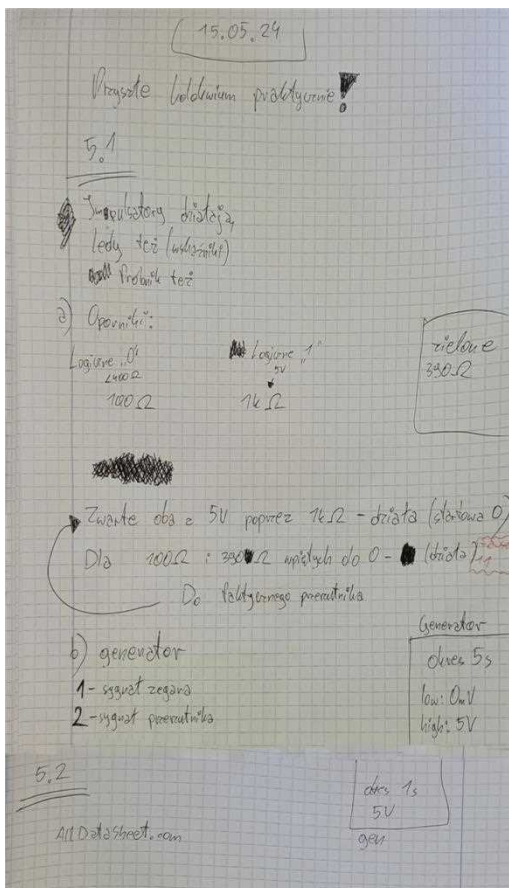 15.05.24
Przyszłe kolokwium praktycznie!
5.1
Impulsatory działają,
ledy też (wskaźniki)
Próbnik też
a) Oporniki:
Logiczne "0"
<400Ω
100Ω
Logiczne "1"
5V
1kΩ
zielone
390Ω
Zwarte oba z 5V poprzez 1kΩ - działa (startowa 0)
Dla 100Ω i 390Ω wpiętych do 0 - (działa)
11
Do faktycznego przerzutnika
b) generator
1 - sygnał zegara
2 - sygnał przerzutnika
Generator
okres 5s
low: 0mV
high: 5V
5.2
AllDatasheet.com
okres 1s
5V
gen